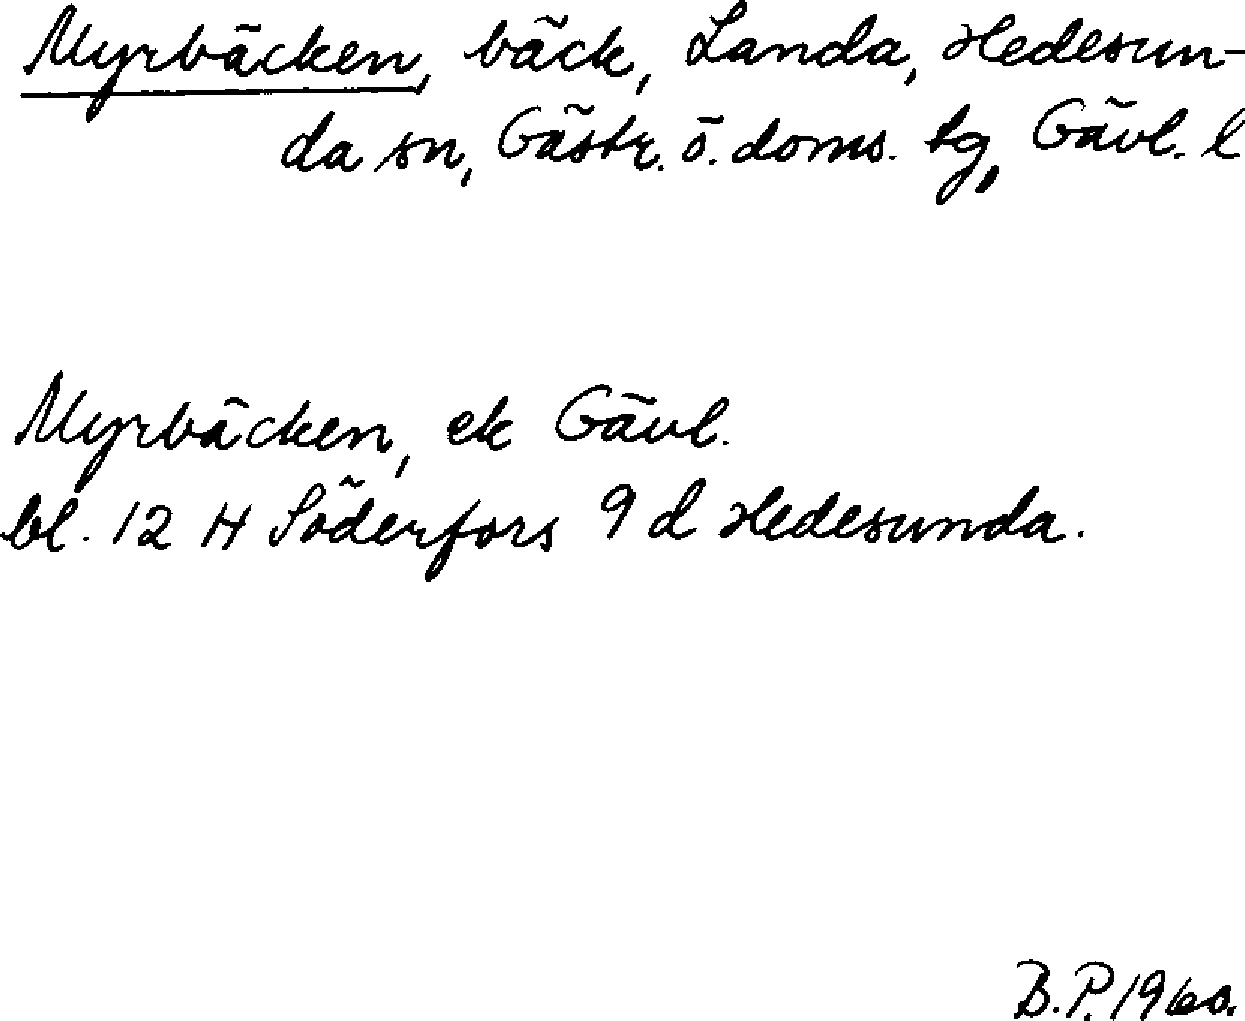 Myrbäcken, bäck, Landa, Hedesun-
da sn, Gästr. ö. doms. tg, Gävl. l
Myrbäcken, ek Gävl.
bl. 12 H Söderfors 9 d Hedesunda.
B.P. 1960.